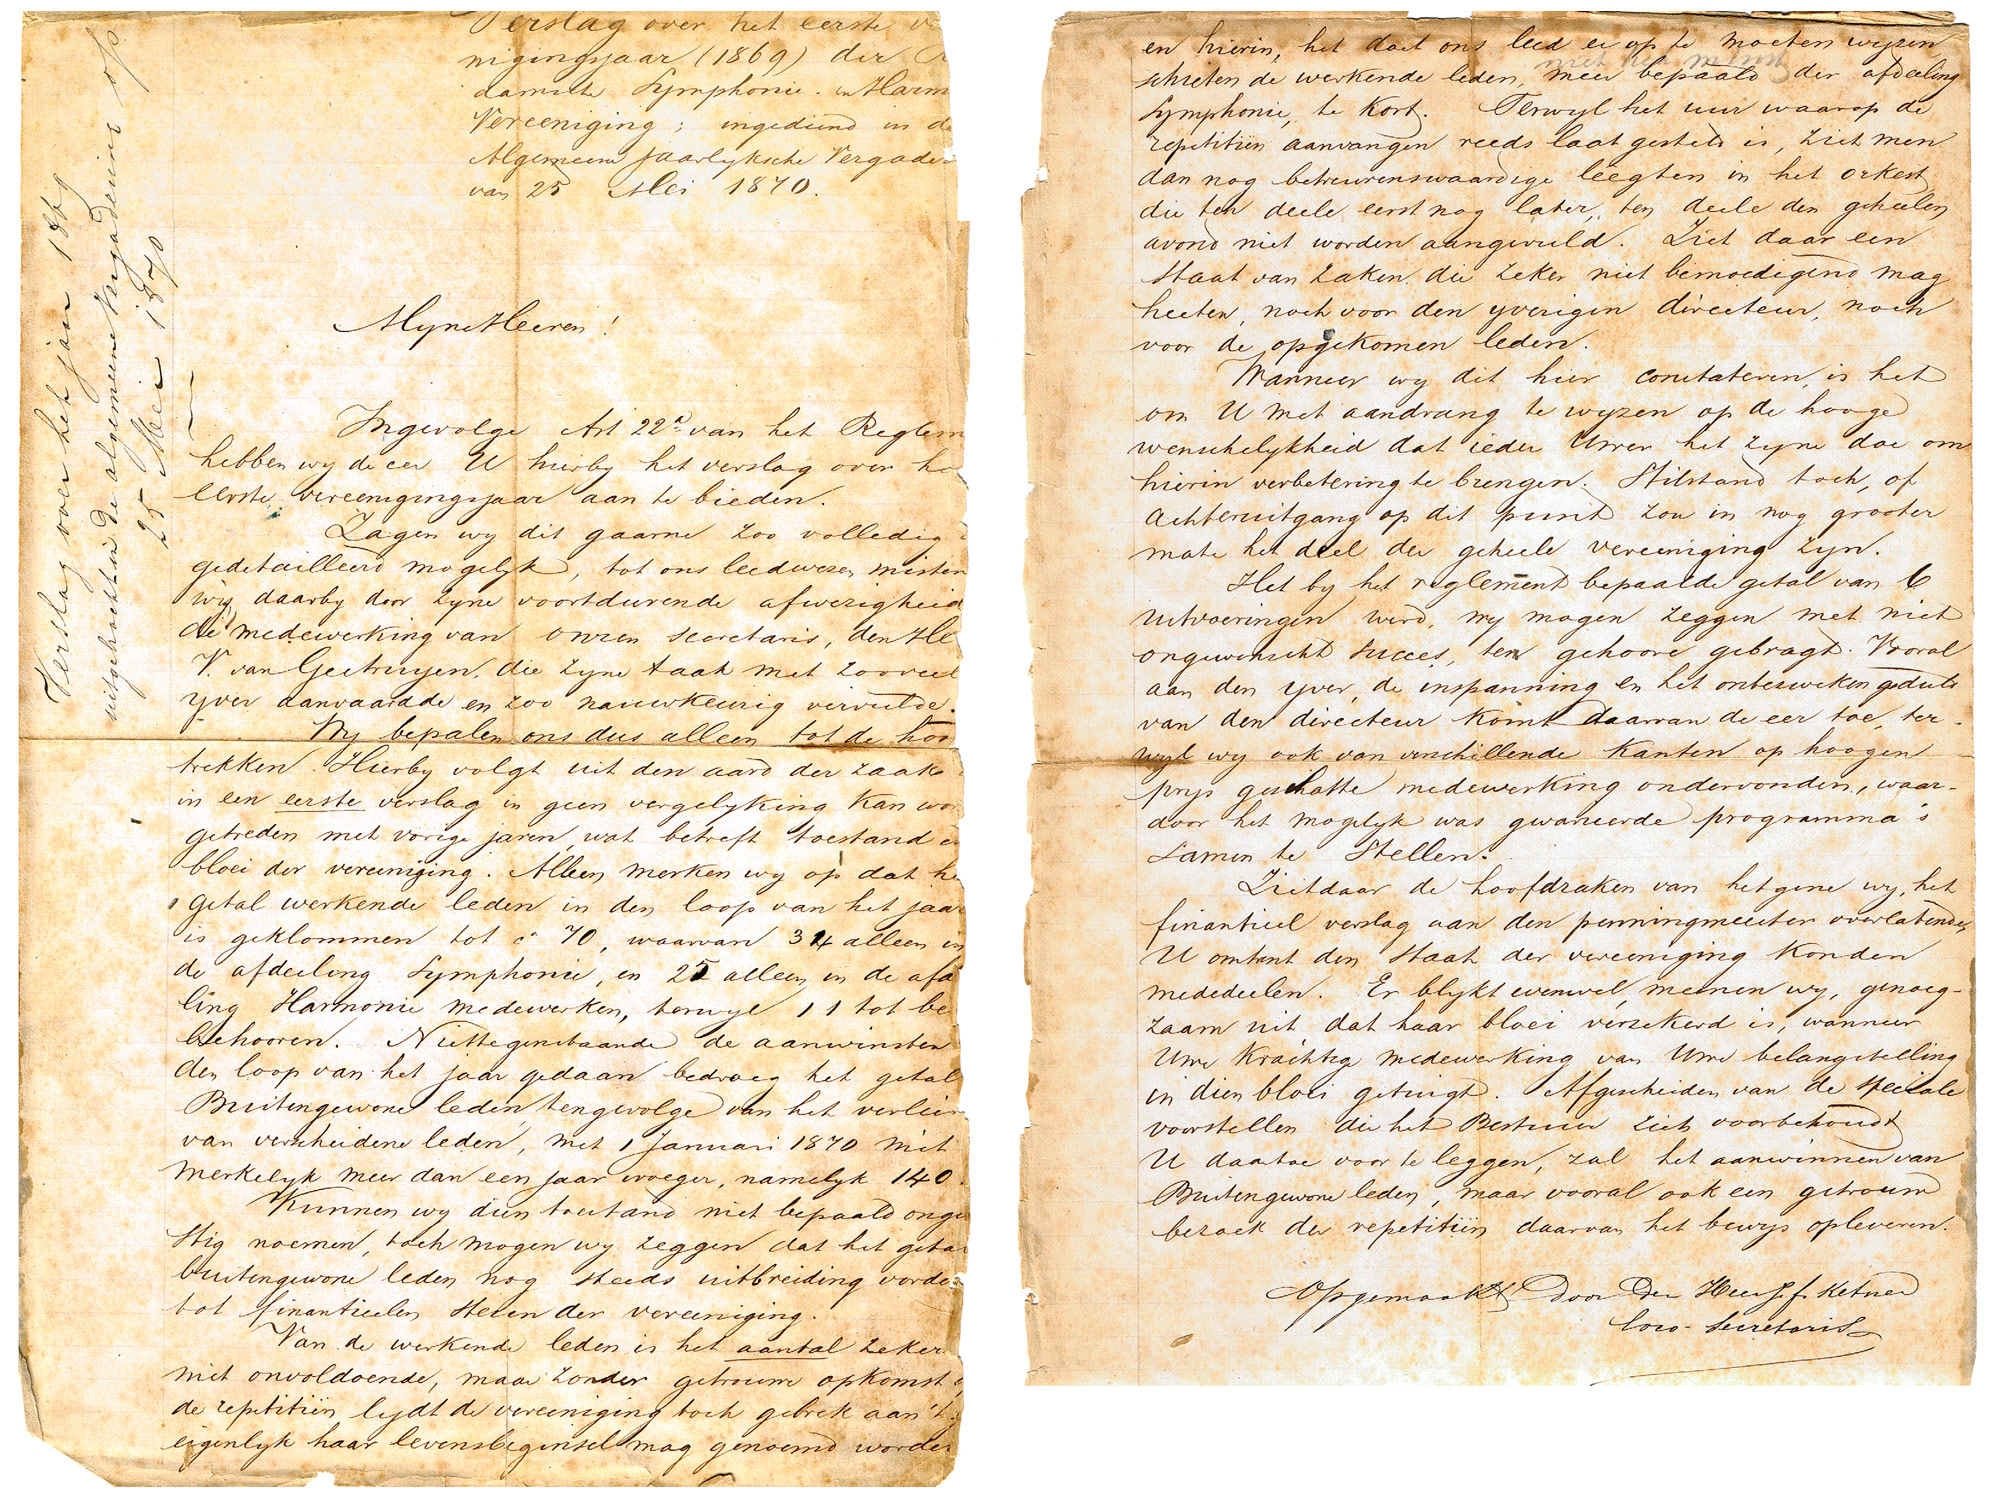 Verslag over het jaar 1869
uitgebracht in de algemeene Vergadering op
25 Mei 1870
Verslag over het eerste ve
nigingsjaar (1869) der
damsche Symphonie- en Harm
Vereeniging; ingediend in de
Algemeene Jaarlyksche Vergade
van 25 Mei 1870.
Myne Heeren!
Ingevolge Art 22 van het Reglem
hebben wy de eer U hierby het verslag over he
eerste vereenigingsjaar aan te bieden.
Zagen wy dit gaarne zoo volledig
gedetailleerd mogelyk, tot ons leedwezen misten
wy daarby door zyne voortdurende afwezigheid
de medewerking van onzen secretaris, den He
V. van Geetruyen, die zyne taak met zooveel
yver aanvaardde en zoo nauwkeurig vervulde.
Wy bepalen ons dus alleen tot de hoo
trekken. Hierby volgt uit den aard der zaak
in een eerste verslag in geen vergelyking kan wor
getreden met vorige jaren, wat betreft toestand e
bloei der vereeniging. Alleen merken wy op dat he
getal werkende leden in den loop van het jaar
is geklommen tot ca 70, waarvan 34 alleen in
de afdeeling Symphonie, en 25 alleen in de afd
ling Harmonie medewerken, terwyl 11 tot be
behooren. Niettegenstaande de aanwinsten
den loop van het jaar gedaan bedroeg het getal
Buitengewone leden, tengevolge van het verlie
van verscheidene leden, met 1 Januari 1870 niet
merkelyk meer dan een jaar vroeger, namelyk 140.
Kunnen wy dien toestand niet bepaald ongu
stig noemen, toch mogen wy zeggen dat het getal
buitengewone leden nog steeds uitbreiding vorde
tot finantieelen steun der vereeniging.
Van de werkende leden is het aantal zeker
niet onvoldoende, maar zonder getrouwe opkomst o
de repetitiën lydt de vereeniging toch gebrek aan 't
eigenlyk haar levensbeginsel mag genoemd worden
en hierin, het doet ons leed er op te moeten wyzen
schieten de werkende leden, meer bepaald der afdeeling
niet het minst
Symphonie, te kort. Terwyl het uur waarop de
repetitiën aanvangen reeds laat gesteld is, ziet men
dan nog betreurenswaardige leegten in het orkest,
die ten deele eerst nog later, ten deele den geheelen
avond niet worden aangevuld. Ziet daar een
Staat van zaken die zeker niet bemoedigend mag
heeten, noch voor den yverigen directeur, noch
voor de opgekomen leden.
Wanneer wy dit hier constateren, is het
om U met aandrang te wyzen op de hooge
wenschelykheid dat ieder Uwer het zyne doe om
hierin verbetering te brengen. Stilstand toch, of
achteruitgang op dit punt zou in nog grooter
mate het deel der geheele vereeniging zyn.
Het by het reglement bepaalde getal van 6
uitvoeringen werd, wy mogen zeggen met niet
ongewenscht succes, ten gehoore gebragt. Vooral
aan den yver, de inspanning en het onbezweken geduld
van den directeur komt daarvan de eer toe, ter-
wyl wy ook van verschillende kanten op hoogen
prys geschatte medewerking ondervonden, waar-
door het mogelyk was gevarieerde programma's
samen te stellen.
Ziet daar de hoofdzaken van hetgene wy, het
finantieel verslag aan den penningmeester overlatende,
U omtrent den Staat der vereeniging konden
mededeelen. Er blykt evenwel, meenen wy, genoeg-
zaam uit dat haar bloei verzekerd is, wanneer
Uwe krachtige medewerking van Uwe belangstelling
in dien bloei getuigt. Afgescheiden van de speciale
voorstellen die het Bestuur zich voorbehoudt
U daartoe voor te leggen, zal het aanwinnen van
Buitengewone leden, maar vooral ook een getrouw
bezoek der repetitiën daarvan het bewys opleveren.
Opgemaakt Door Den Heer J. f. Ketner
loco-Secretaris